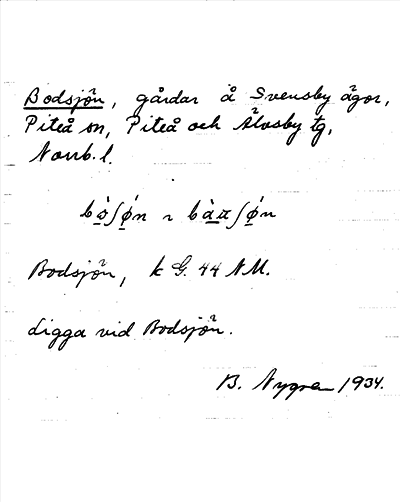 Bodsjön, gårdar å Svensby ägor,
Piteå sn, Piteå och Älvsby tg,
Norrb. l.
Bodsjön, k G. 44 NM.
Ligga vid Bodsjön.
B. Nygren 1934.